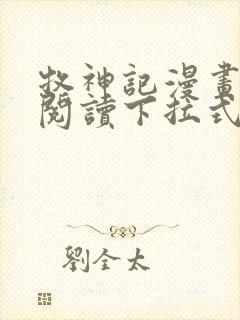 牧神記漫畫
閱讀下拉式
劉全太